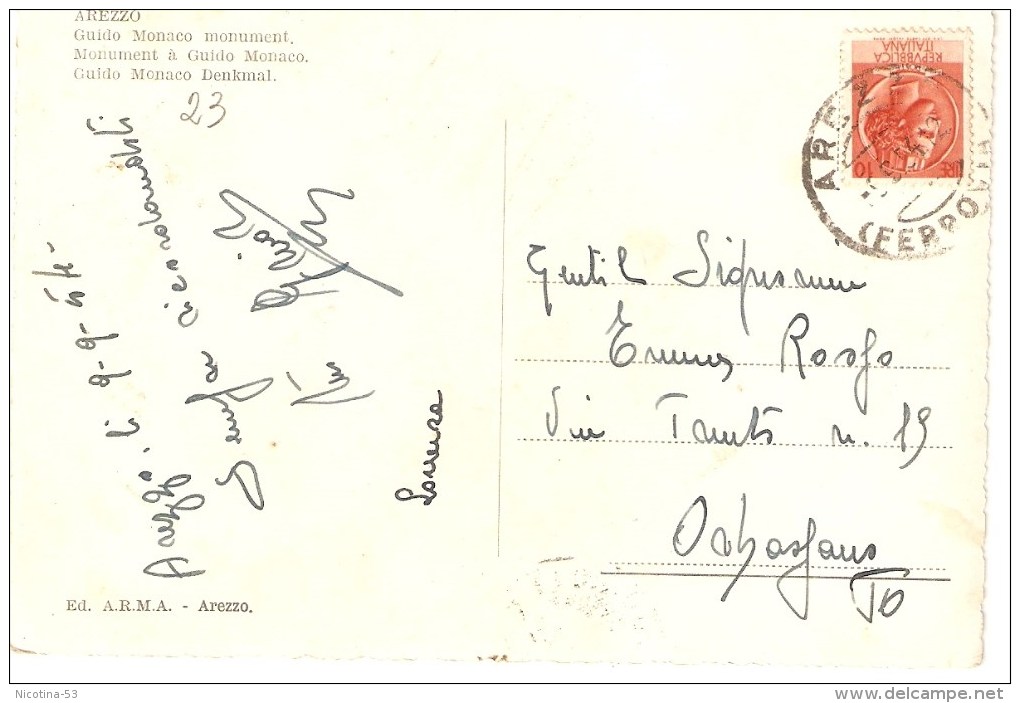 AREZZO
Guido Monaco monument.
Monument à Guido Monaco.
Guido Monaco Denkmal.
23
Arezzo, li 9-9-
Sempre ricordandoti
Lorenza
Ed. A.R.M.A. - Arezzo.
REPVBBLICA
ITALIANA
LIRE 10
(FERROVIA
Gentil Signorina
Emma Rosso
Via Trento n. 19
Orbassano
TO
Nicotina-53
www.delcampe.net